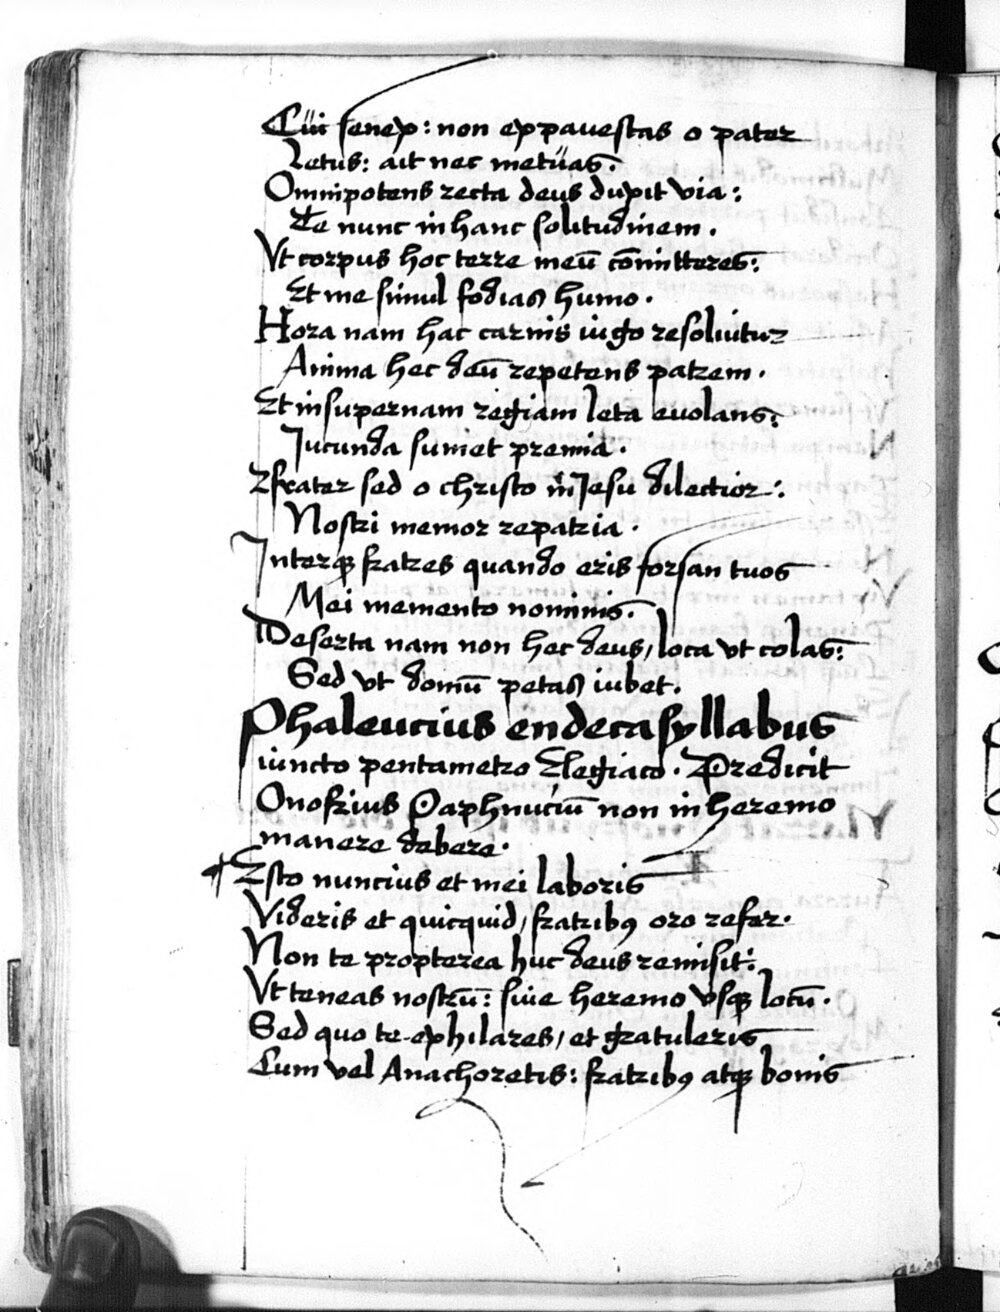 Cui senex: non expauescas o pater
Letus: ait nec metuas.
Omnipotens recta deus duxit via:
Te nunc in hanc solitudinem.
Vt corpus hoc terre meū cōmitteres:
Et me simul fodias humo.
Hora nam hac carnis iugo resoluitur
Anima hec deū repetens patrem.
Et in supernam regiam leta euolans:
Iucunda sumet premia.
frater sed o christo Iesu dilectior:
Nostri memor repatria.
Interq̃ fratres quando eris forsan tuos
Mei memento nominis.
Deserta nam non hec deus, loca vt colas:
Sed vt domū petas iubet.
Phaleucius endecasyllabus
iuncto pentametro Elegiaco. Predicit
Onofrius Paphnuciū non in heremo
manere debere.
Esto nuncius et mei laboris
Videris et quicquid, fratribꝰ oro refer.
Non te propterea huc deus remisit:
Vt teneas nostrū: siue heremo vsq̃ locū.
Sed quo te exhilares, et gratuleris
Cum vel Anachoretis: fratribꝰ atq̃ bonis